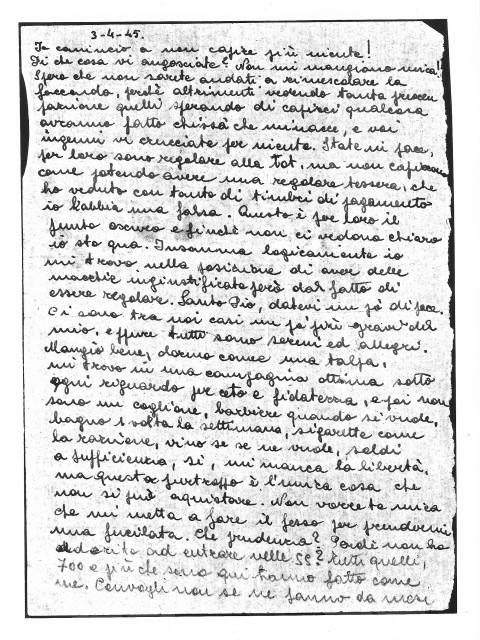 3-4-45.
Io comincio a non capire più niente!
Di che cosa vi angosciate? Non mi mangiano mica!
Spero che non sarete andati a rimescolare la
faccenda, perchè altrimenti vedendo tanta preoccu
pazione quelli sperando di capirci qualcosa
avranno fatto chissà che minacce, e voi
ingenui vi crucciate per niente. State in pace,
per loro sono regolare alla Tot, ma non capiscono
come potendo avere una regolare tessera, che
ho veduto con tanto di timbri di pagamento
io l'abbia una falsa. Questo è per loro il
punto oscuro e finchè non ci vedono chiaro
io sto qua. Insomma logicamente io
mi trovo nella posizione di aver delle
macchie ingiustificate però dal fatto di
essere regolare. Santo Dio, datevi un po' di pace.
Ci sono tra noi casi un po' più gravi del
mio, eppure tutti sono sereni ed allegri.
Mangio bene, dormo come una talpa,
mi trovo in una compagnia ottima sotto
ogni riguardo per ceto e fidatezza, e poi non
sono un coglione, barbiere quando si vuole,
bagno 1 volta la settimana, sigarette come
la razione, vino se se ne vuole, soldi
a sufficienza, sì, mi manca la libertà,
ma questa purtroppo è l'unica cosa che
non si può acquistare. Non vorrete mica
che mi metta a fare il fesso per prendermi
una fucilata. Che prudenza? Perchè non ho
aderito ad entrare nelle SS? tutti quelli,
700 e più che sono qui hanno fatto come
me. Convogli non se ne fanno da mesi